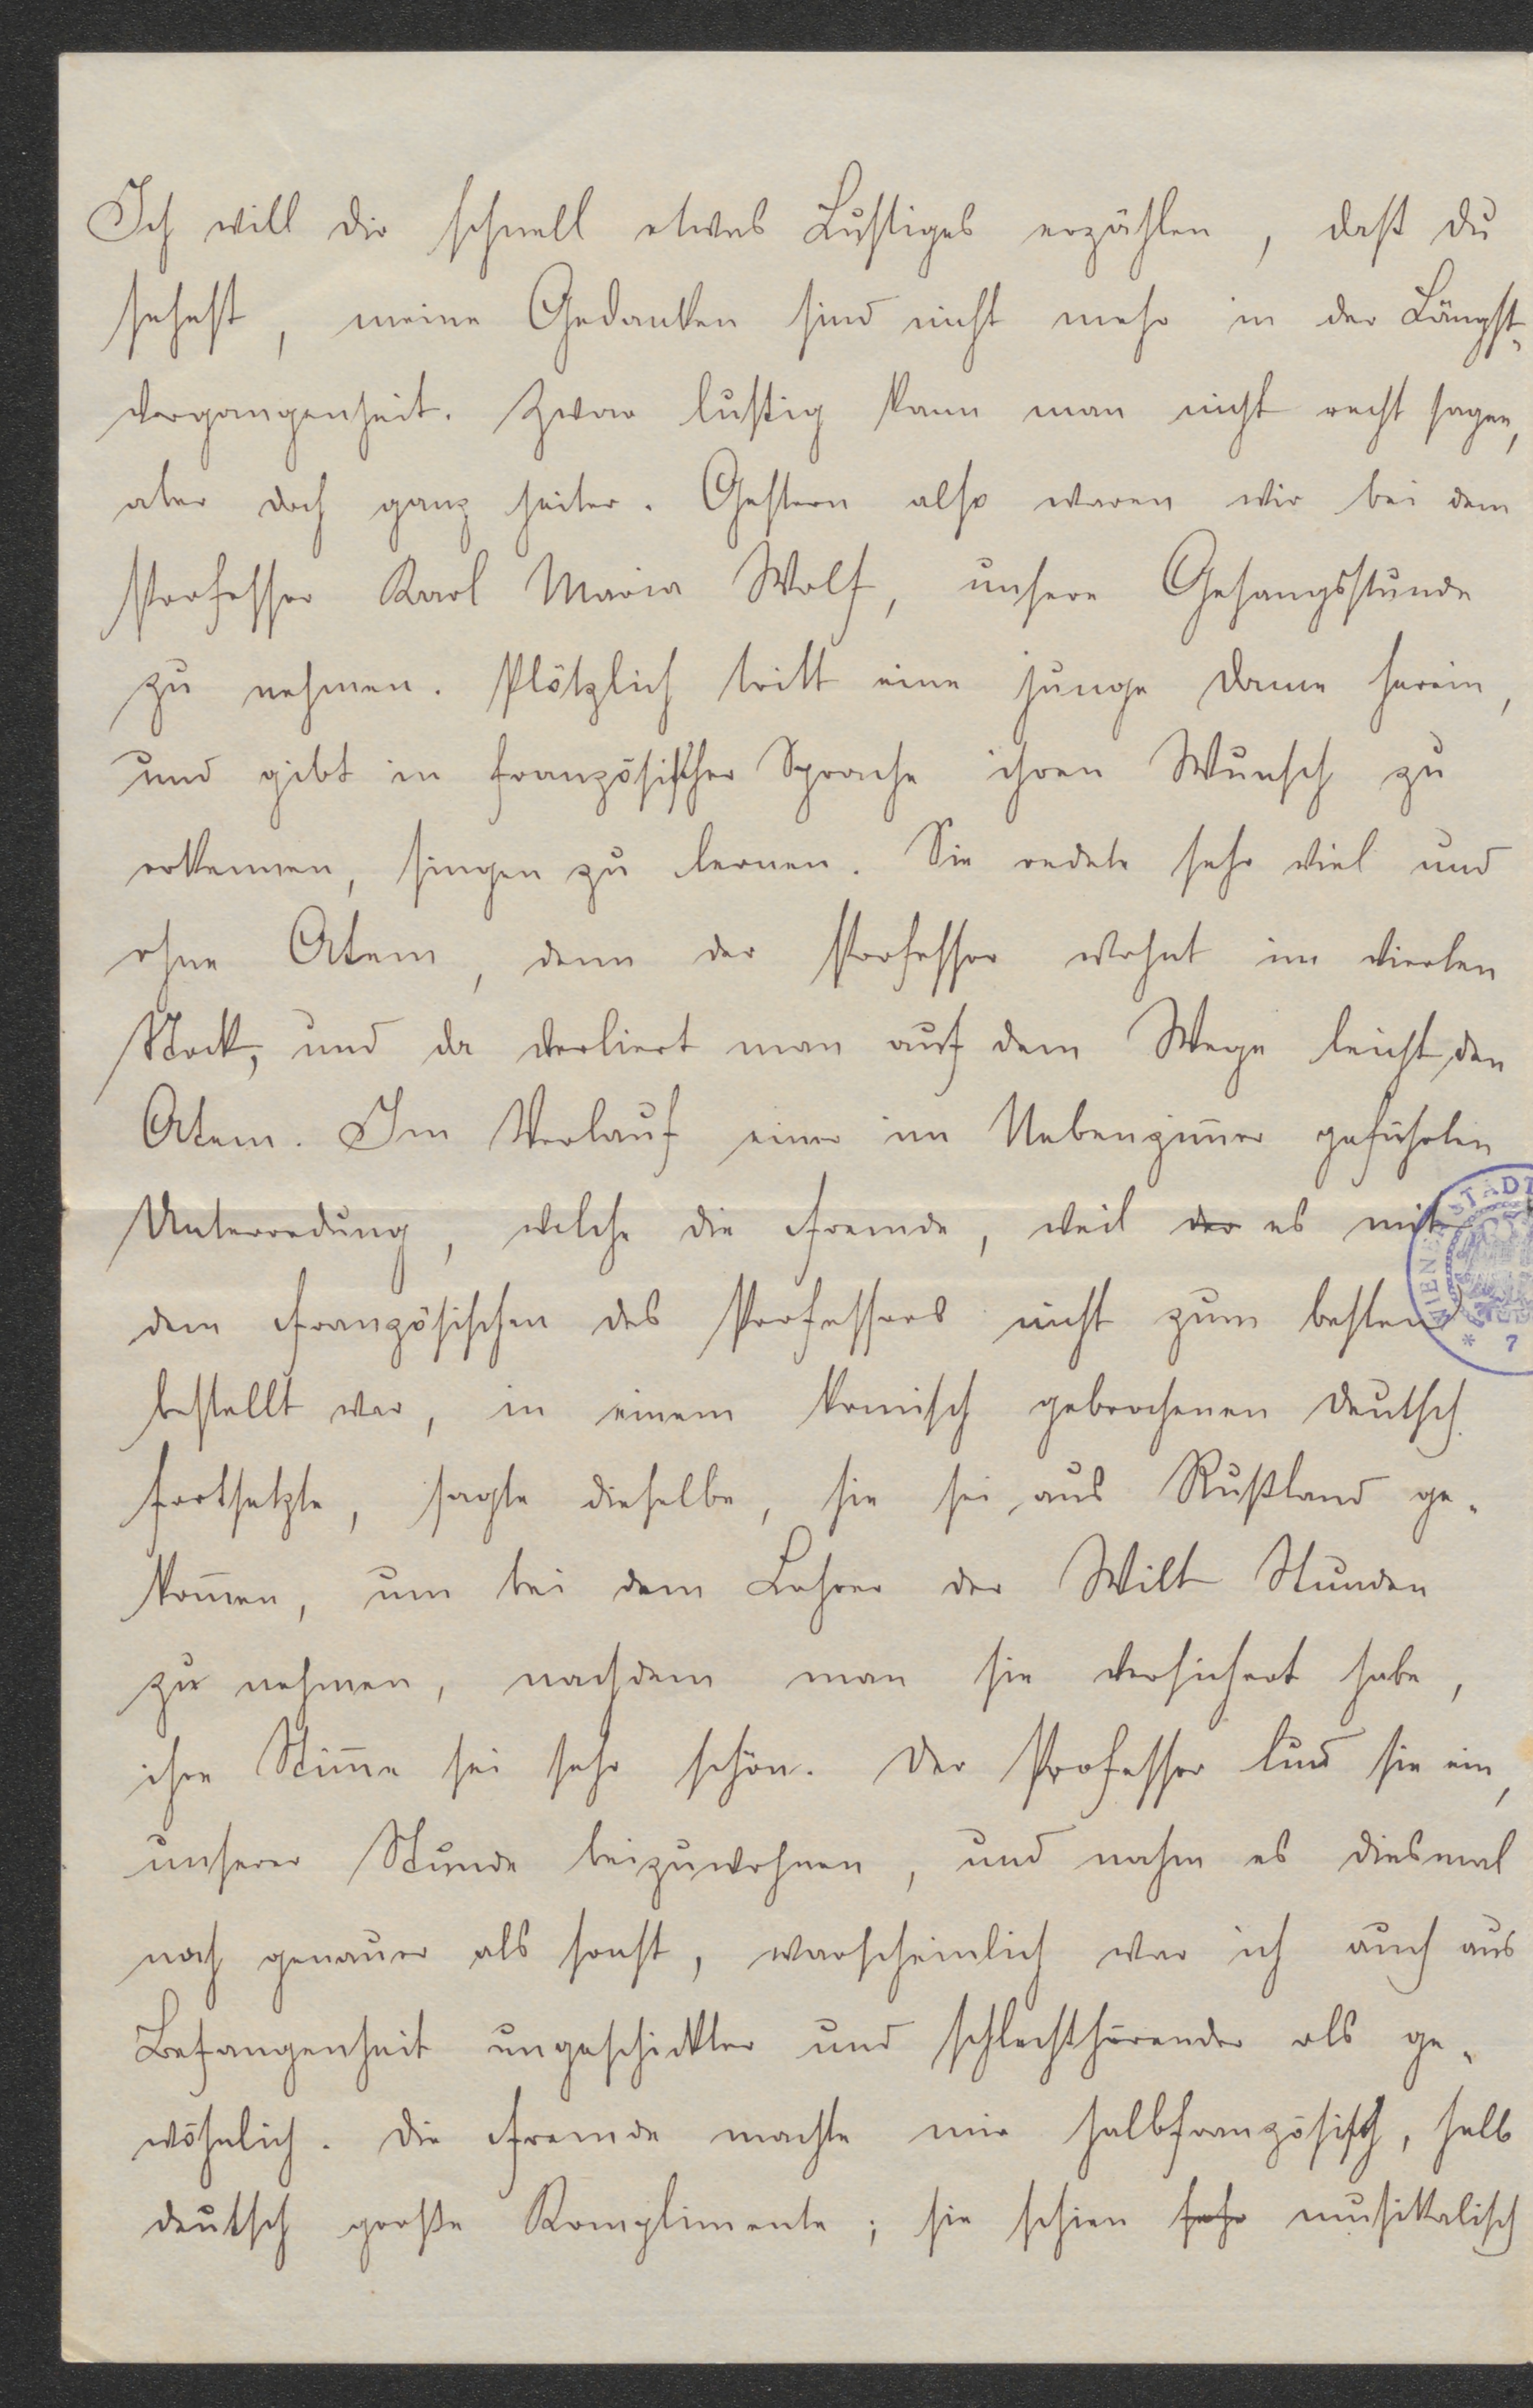 Ich will dir schnell etwas Lustiges erzählen, daß du
sehest, meine Gedanken sind nicht mehr in der Längst-
vergangenheit. Zwar lustig kann man nicht recht sagen,
aber doch ganz heiter. Gestern also waren wir bei dem
Professor Karl Maria Wolf, unsere Gesangsstunde
zu nehmen. Plötzlich tritt eine junge Dame herein,
und gibt in französischer Sprache ihren Wunsch zu
erkennen, singen zu lernen. Sie redete sehr viel und
ohne Atem, denn der Professor wohnt im vierten
Stock, und da verliert man auf dem Wege leicht den
Atem. Im Verlauf einer im Nebenzim̅er geführten
Unterredung, welche die Fremde, weil der es mit
dem Französischen des Professors nicht zum besten
bestellt war, in einem komisch gebrochenen Deutsch
fortsetzte, sagte dieselbe, sie sei aus Rußland ge-
kom̅en, um bei dem Lehrer der Wilt Stunden
zu nehmen, nachdem man sie versichert habe,
ihre Stim̅e sei sehr schön. Der Professor lud sie ein,
unserer Stunde beizuwohnen, und nahm es diesmal
noch genauer als sonst, warscheinlich war ich auch aus
Befangenheit ungeschickter und schlechthörender als ge-
wöhnlich. Die Fremde machte mir halbfranzösisch, halb
deutsch große Komplimente; sie schien sehr musikalisch
WIENER STADT
* 7